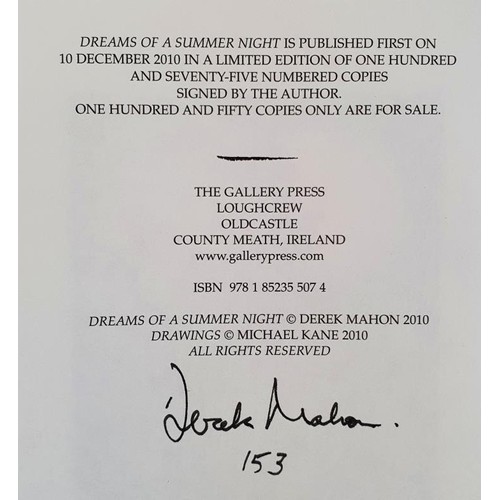 DREAMS OF A SUMMER NIGHT IS PUBLISHED FIRST ON
10 DECEMBER 2010 IN A LIMITED EDITION OF ONE HUNDRED
AND SEVENTY-FIVE NUMBERED COPIES
SIGNED BY THE AUTHOR.
ONE HUNDRED AND FIFTY COPIES ONLY ARE FOR SALE.
THE GALLERY PRESS
LOUGHCREW
OLDCASTLE
COUNTY MEATH, IRELAND
www.gallerypress.com
ISBN 978 1 85235 507 4
DREAMS OF A SUMMER NIGHT © DEREK MAHON 2010
DRAWINGS © MICHAEL KANE 2010
ALL RIGHTS RESERVED
Derek Mahon.
153